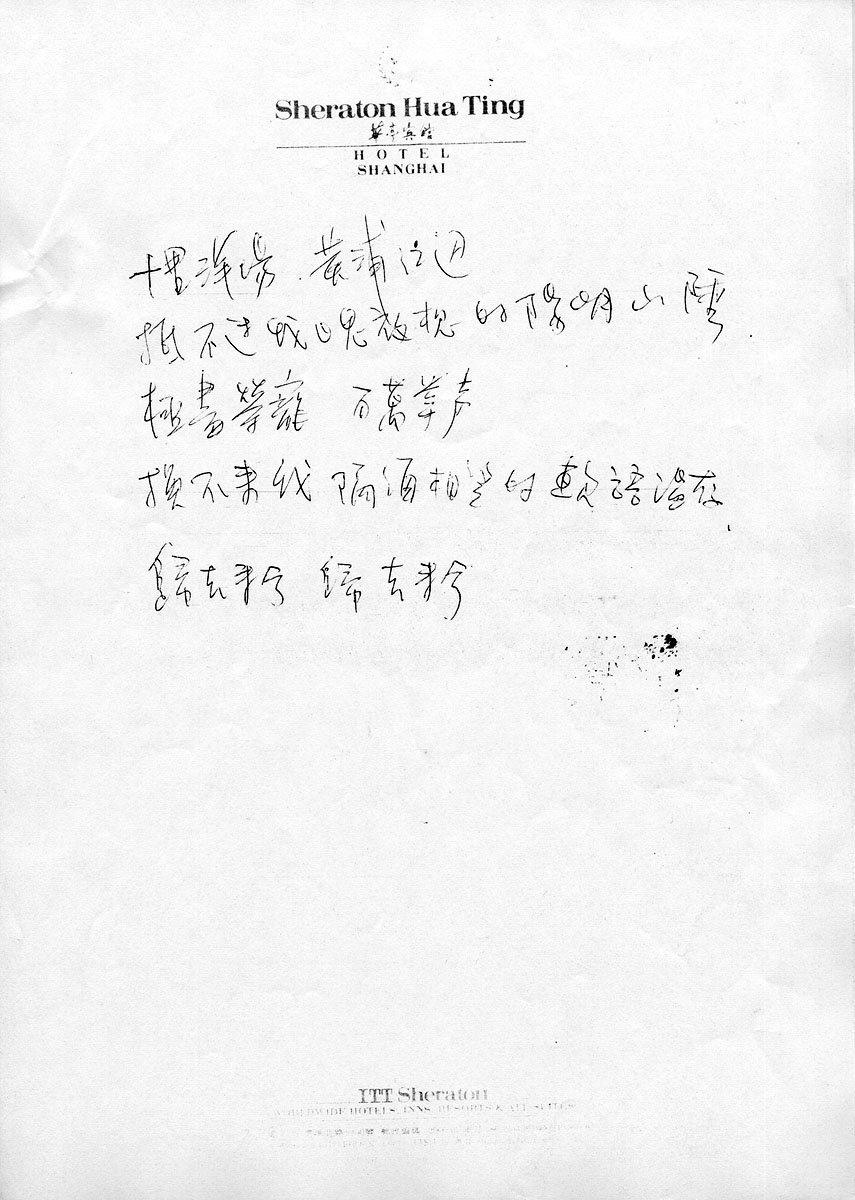 Sheraton Hua Ting
華亭賓館
HOTEL
SHANGHAI
十里洋場 黃浦江边
抵不过我魂敧想的陽明山
極盡榮寵 百萬掌声
換不来我隔酒相望的軟語溫存
歸去来兮 歸去来兮
ITT Sheraton
WORLDWIDE HOTELS, INNS, RESORTS & ALL-SUITES